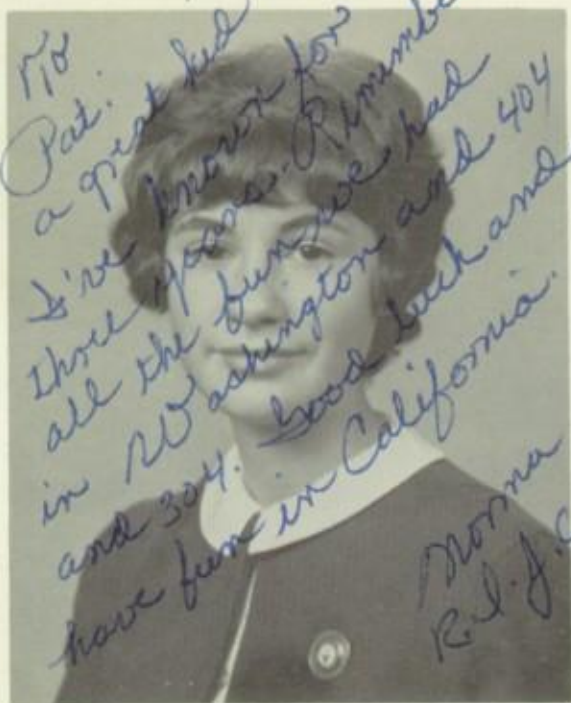 To
Pat:
a great kid
I've known for
three years. Remember
all the fun we had
in Washington and 404
and 304. Good luck and
have fun in California.
Norma
R.I.J.C